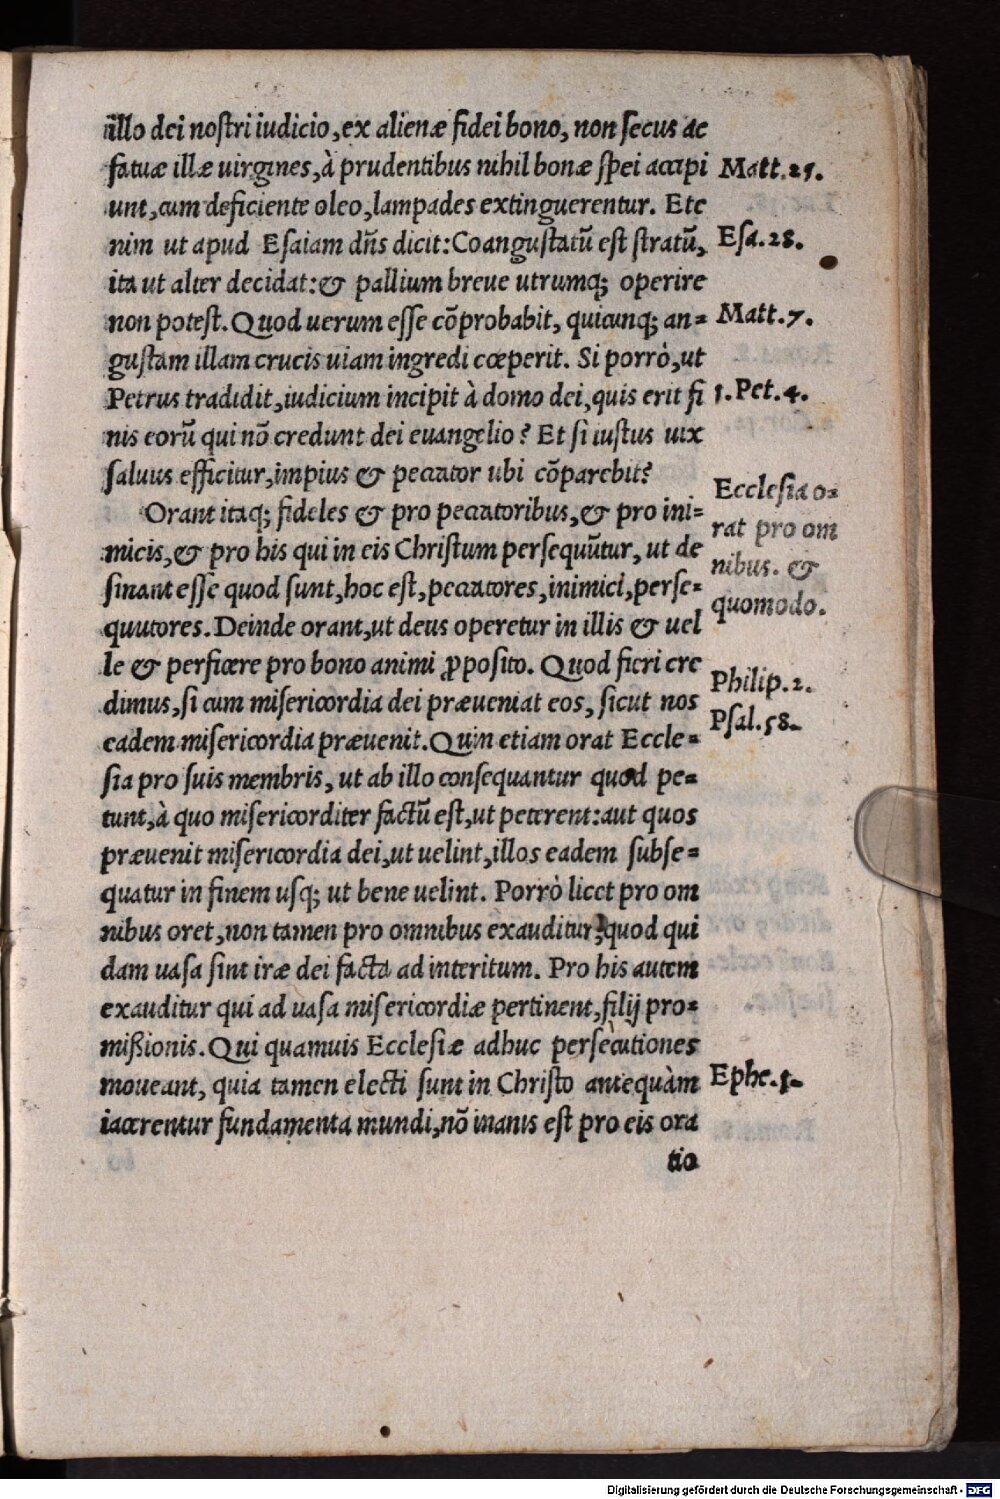 illo dei nostri iudicio, ex alienæ fidei bono, non secus ac
fatuæ illæ uirgines, à prudentibus nihil bonæ spei accipi
unt, cum deficiente oleo, lampades extinguerentur. Ete
nim ut apud Esaiam dñs dicit: Coangustatū est stratū,
ita ut alter decidat: & pallium breue utrumq; operire
non potest. Quod uerum esse cōprobabit, quicunq; an=
gustam illam crucis uiam ingredi cœperit. Si porrò, ut
Petrus tradidit, iudicium incipit à domo dei, quis erit fi
nis eorū qui nō credunt dei euangelio? Et si iustus uix
saluus efficitur, impius & peccator ubi cōparebit?
Orant itaq; fideles & pro peccatoribus, & pro ini=
micis, & pro his qui in eis Christum persequūtur, ut de
sinant esse quod sunt, hoc est, peccatores, inimici, perse=
quutores. Deinde orant, ut deus operetur in illis & uel
le & perficere pro bono animi ꝓposito. Quod fieri cre
dimus, si cum misericordia dei præueniat eos, sicut nos
eadem misericordia præuenit. Quin etiam orat Eccle=
sia pro suis membris, ut ab illo consequantur quod pe=
tunt, à quo misericorditer factū est, ut peterent: aut quos
præuenit misericordia dei, ut uelint, illos eadem subse=
quatur in finem usq; ut bene uelint. Porrò licet pro om
nibus oret, non tamen pro omnibus exauditur, quod qui
dam uasa sint iræ dei facta ad interitum. Pro his autem
exauditur qui ad uasa misericordiæ pertinent, filij pro=
mißionis. Qui quamuis Ecclesiæ adhuc persècutiones
moueant, quia tamen electi sunt in Christo antequàm
iacerentur fundamenta mundi, nō inanis est pro eis ora
tio
Matt.25.
Esa.28.
Matt.7.
1.Pet.4.
Ecclesia o=
rat pro om
nibus. &
quomodo.
Philip.2.
Psal.58.
Ephe.1.
Digitalisierung gefördert durch die Deutsche Forschungsgemeinschaft - DFG